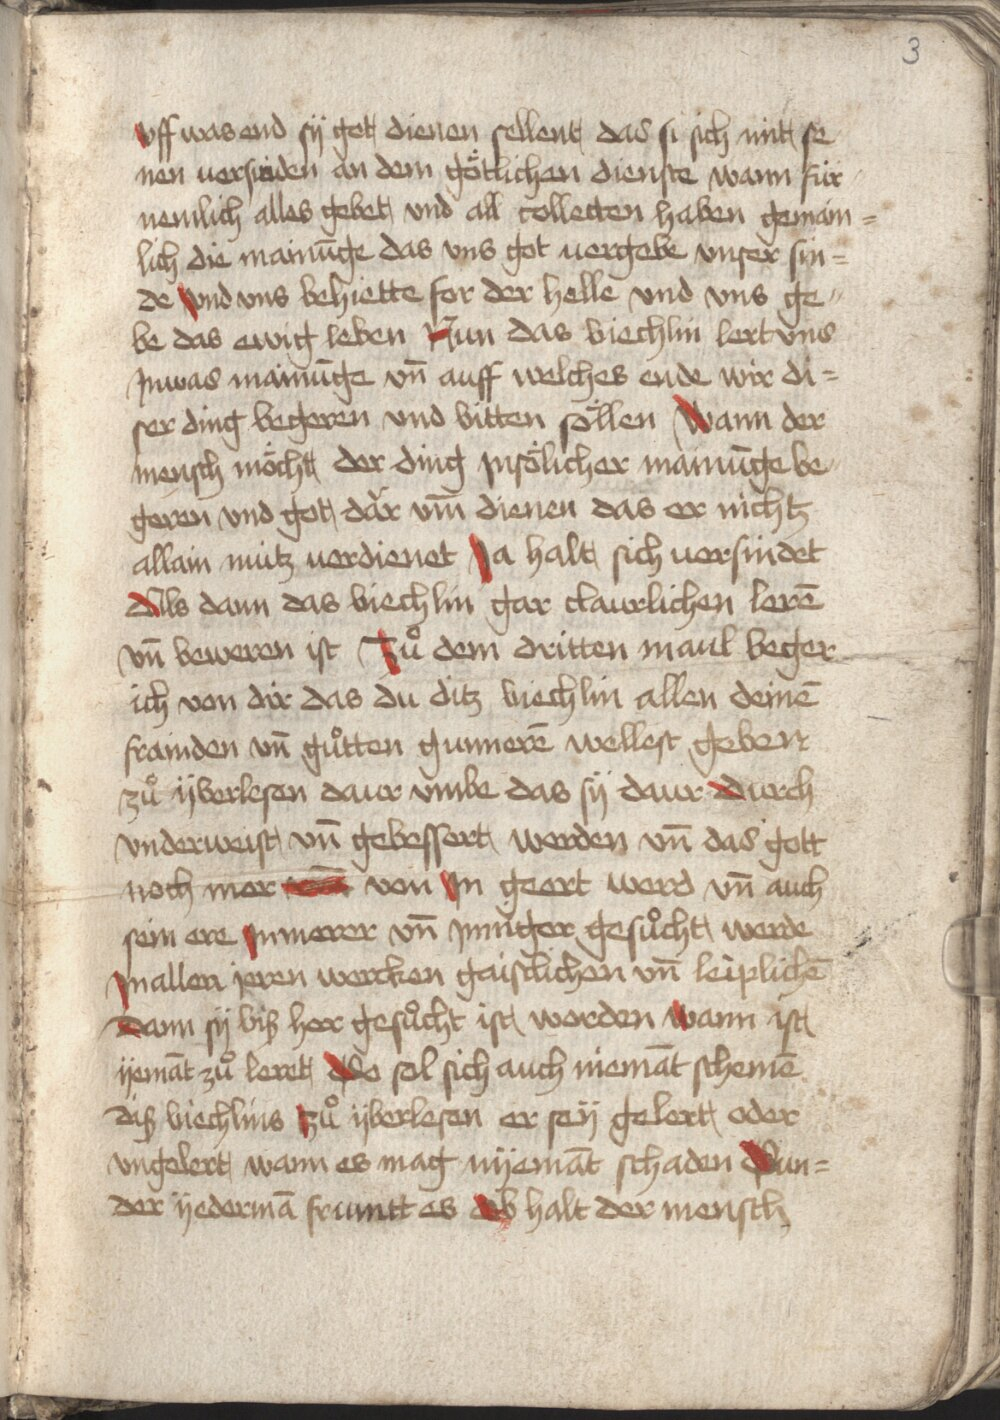 3
vff was end sÿ got dienen sellent das si sich mit se
nen versinden an dem götlichen dienste wann für
nemlich alles gebet vnd all collecten haben gemain =
lich die mainūge das vns got vergebe vnser sin =
de vnd vns behiette for der helle vnd vns ge =
be das ewig leben Nun das biechlin lert vns
Jnwas mainūge vn̄ auff welches ende wir di =
ser ding begeren vnd bitten söllen Wann der
mensch möcht der ding jnsölicher mainūge be
geren vnd got dar vm̄ dienen das er nichtz
allain nutz verdienet Ja halt sich versindet
Als dann das biechlin gar claurlichen lerē
vn̄ beweren ist Zuͦ dem dritten maul beger
ich von dir das du ditz biechlin allen deinē
frainden vn̄ guͦtten gunnerē wellest geben
zuͦ ÿberlesen daur vmbe das sÿ daur durch
vnderweist vn̄ gebessert werden vn̄ das gott
noch mer von jn geert werd vn̄ auch
sein ere jnnerer vn̄ jnniger gesuͦcht werde
jnallen jeren wercken gaistlichen vn̄ leiplichē
Dann sÿ biß her gesuͦcht ist worden wann ist
ÿemāt zuͦ leret So sol sich auch niemāt schemē
diß biechlins zuͦ ÿberlesen er seÿ gelert oder
vngelert wann es mag nÿemāt schaden Sun =
der ÿedermā frumtt es ob halt der mensch